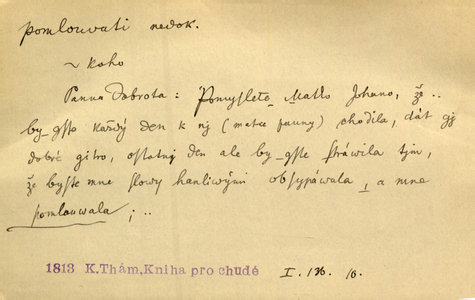 pomlouvati nedok.
~ koho
Panna Dobrota: Pomysleto Matko Johano, že ..
by_gste každý den k nj (matce panny) chodila, dát gj
dobré gitro, ostatnj den ale by_gste stráwila tjm,
že byste mne slowy hanliwými obsypáwala, a mne
pomlouwala; ..
1813 K.Thám, Kniha pro chudé I. 136. 16.